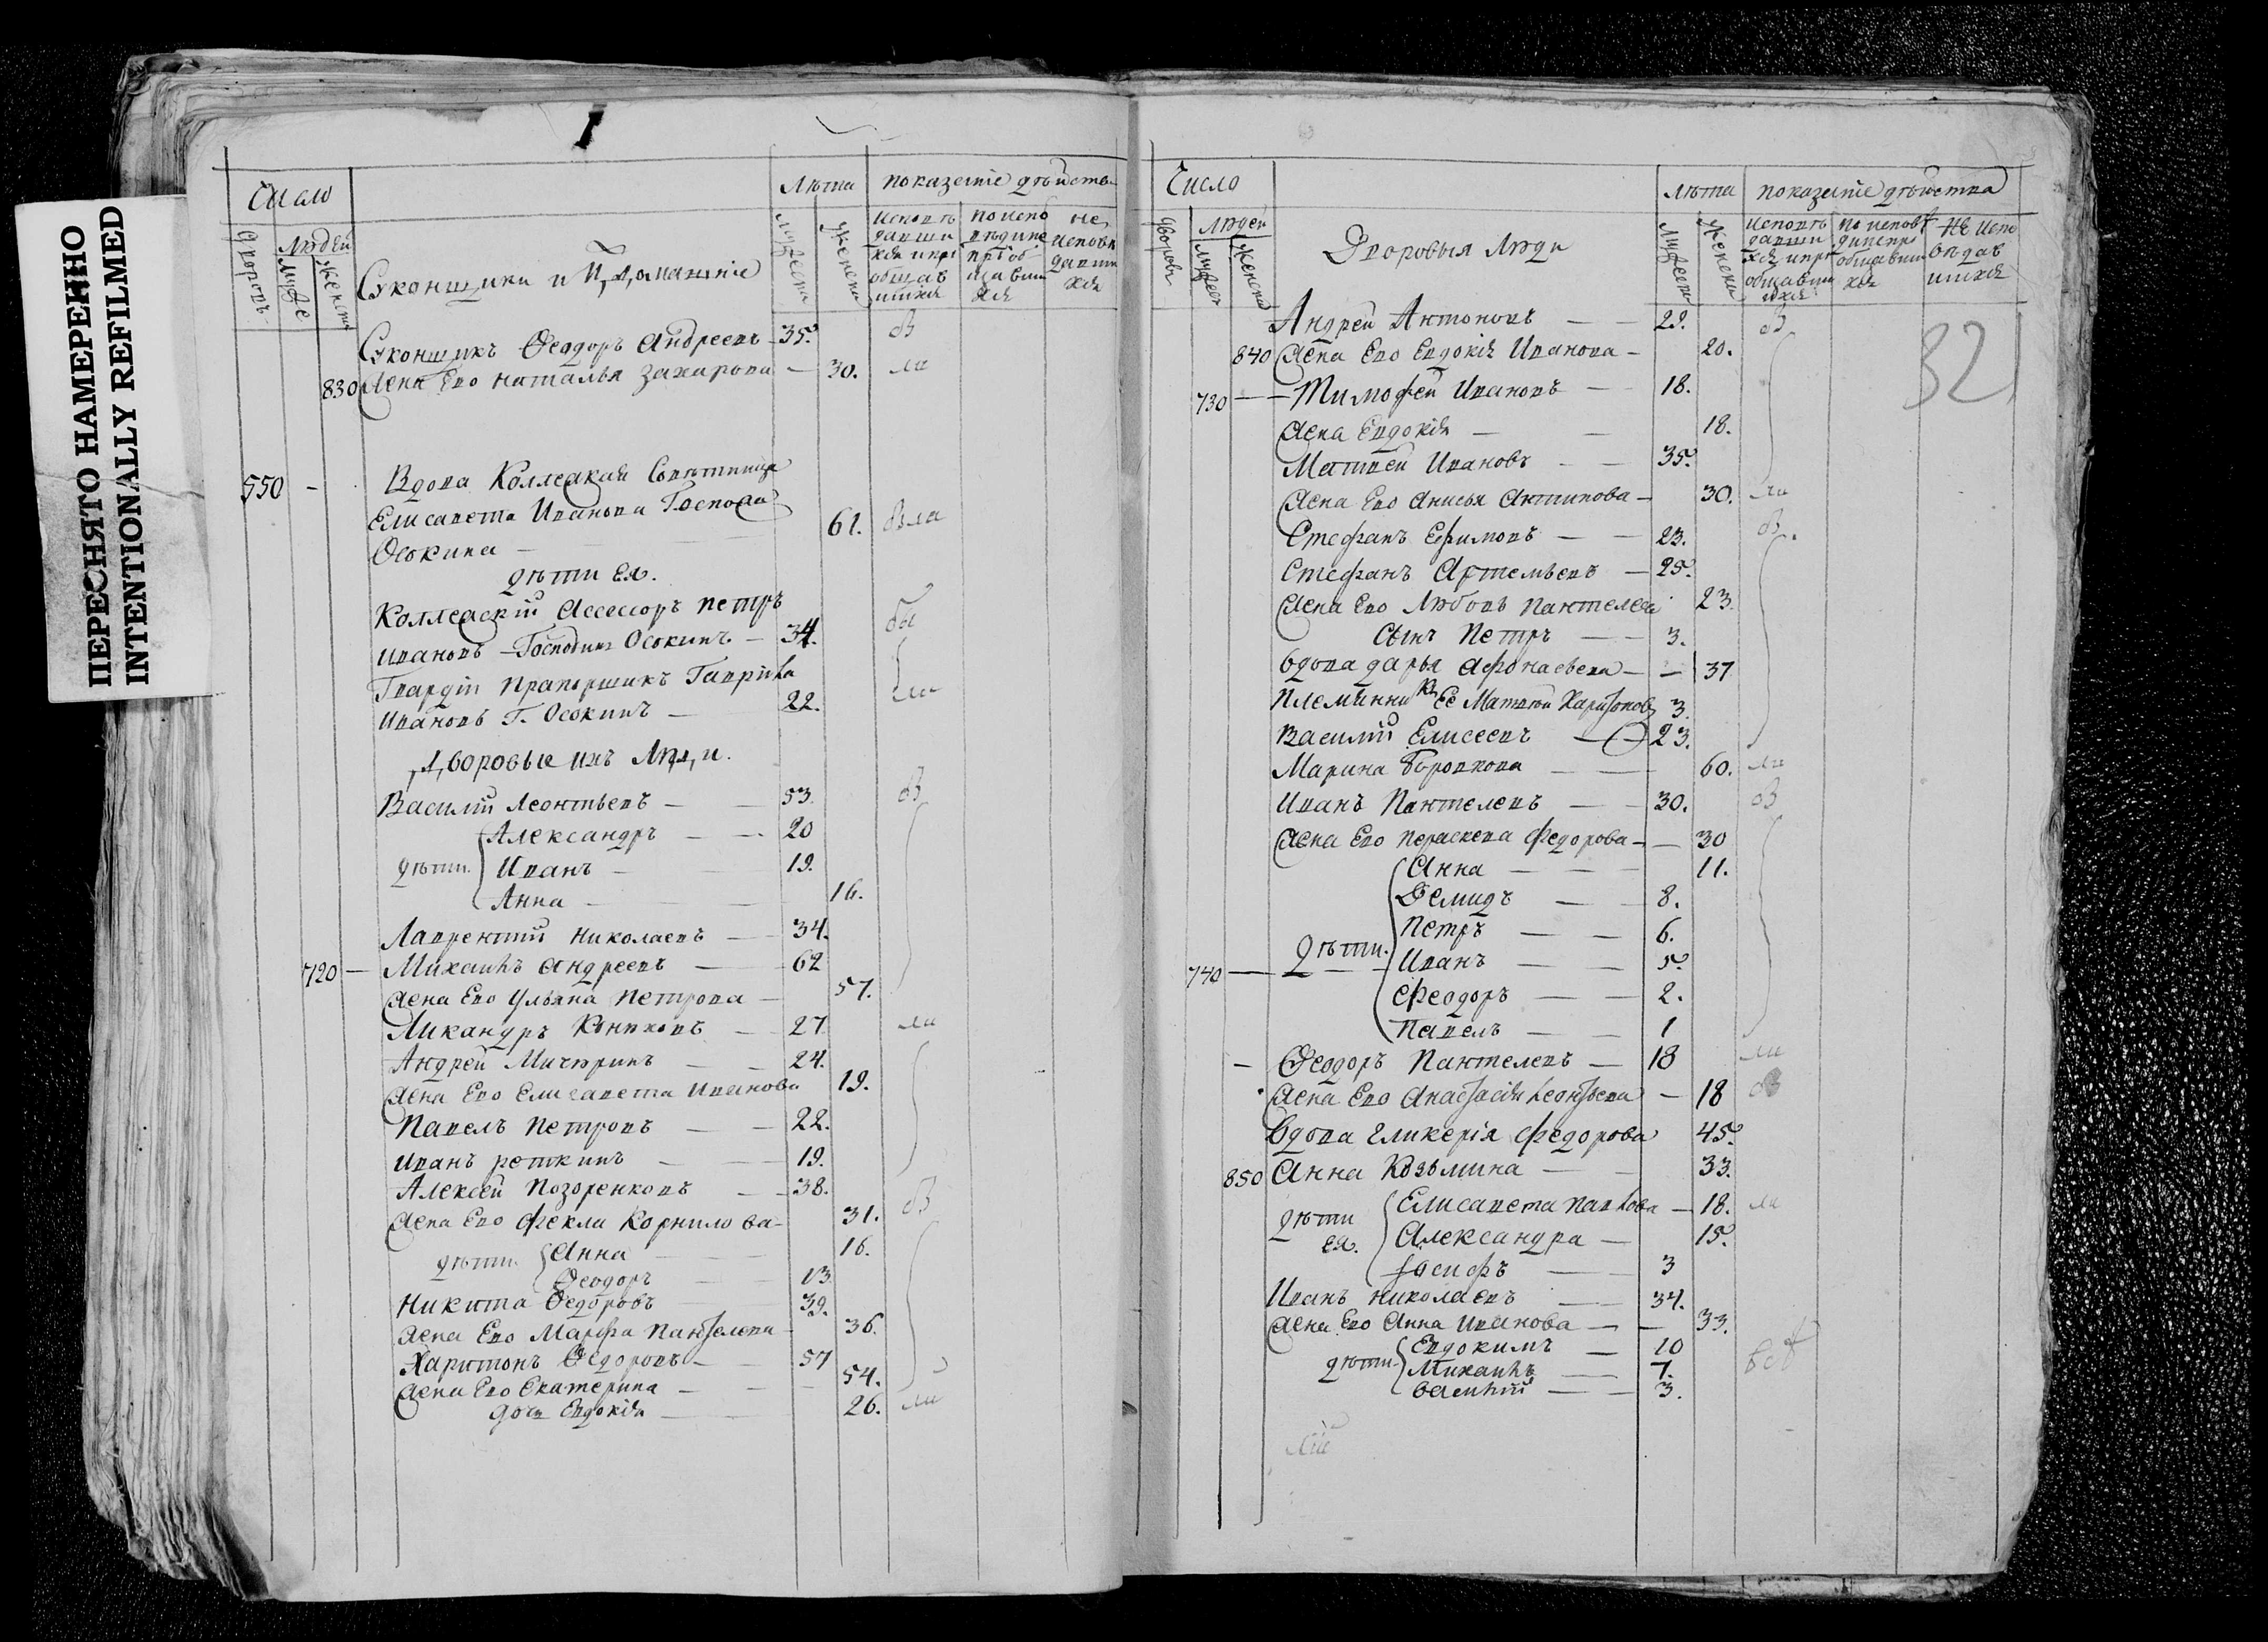 ПЕРЕСНЯТО НАМЕРЕННО
INTENTIONALLY REFILMED
Число
Лѣта
показание дѣйства
дворовъ
Людей
Муже
женска
Суконщики и ихъ домашніе
Мужеска
Женска
исповѣ
давши
хся и при
общав
шихся
по испо
вѣди не
пріоб
щавши
хся
не
исповѣ
давши
хся
Суконщикъ Ѳеодоръ Андреевъ — 35.
830 Жена Ево Наталья Захарова — 30.
550 — Вдова Коллежская Совѣтница
Елисавета Иванова Госпожа
Осокина — 61.
дѣти Ея.
Коллежскій Ассессоръ Петръ
Ивановъ Господинъ Осокинъ — 34.
Гвардіи Прапорщикъ Гаврила
Ивановъ Г. Осокинъ — 22.
Дворовые ихъ Люди.
Василій Леонтьевъ — 53.
Александръ — 20
дѣти. Иванъ — 19.
Анна — 16.
Лаврентій Николаевъ — 34.
720 — Михаилъ Андреевъ — 62
Жена Ево Ульяна Петрова — 57.
Никандръ Коняховъ — 27
Андрей Мичюринъ — 24.
Жена Ево Елисавета Иванова 19.
Павелъ Петровъ — 22.
Иванъ Реткинъ — 19.
Алексей Позоренковъ — 38.
Жена Ево Фекла Корнилова — 31.
дѣти. Анна — 16.
Ѳеодоръ — 13.
Никита Ѳедоровъ — 39.
Жена Ево Марфа Пантелева — 36.
Харитонъ Ѳедоровъ — 57
Жена Ево Екатерина — 54.
дочь Евдокія — 26.
Число
Лѣта
показание дѣйства
дворовъ
Людей
Мужес
женска
Дворовыя Люди
Мужеска
Женска
исповѣ
давши
хся и при
общавши
ихся
по исповѣ
ди не прі
общавши
хся
не испо
вѣдав
шихся
32
Андрей Антоновъ — 29.
840 Жена Ево Евдокія Иванова — 20.
730 — Тимофей Ивановъ — 18.
Жена Евдокія — 18.
Матвей Ивановъ — 35.
Жена Ево Анисья Антипова — 30.
Стефанъ Ефимовъ — 23.
Стефанъ Артемьевъ — 25.
Жена Ево Любовь Пантелева 23.
Сынъ Петръ — 3.
Вдова Дарья Афонасьева — 37
Племянникъ Ее Матвѣй Харитоновъ 3.
Василій Елисеевъ — 23.
Марина Боровкова — 60.
Иванъ Пантелевъ — 30.
Жена Ево Пераскева Федорова — 30
Анна — 11.
Демидъ — 8.
Петръ — 6.
740 — дѣти. Иванъ — 5.
Феодоръ — 2.
Павелъ — 1
Ѳеодоръ Пантелевъ — 18
Жена Ево Анастасія Леонтьева — 18
Вдова Гликерія Федорова 45.
850 Анна Козьмина — 33.
дѣти Елисавета Павлова — 18.
ея. Александра — 15.
Іосифъ — 3
Иванъ Николаевъ — 34.
Жена Ево Анна Иванова — 33.
Евдокимъ — 10
дѣти. Михаилъ — 7.
Василій — 3.